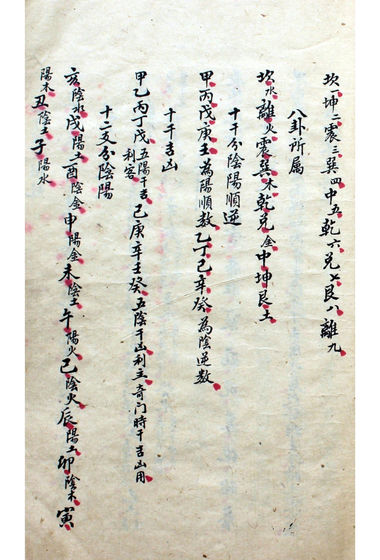 坎一坤二震三巽四中五乾六兌七艮八離九
八卦所属
坎水離火震巽木乾兌金中坤艮土
十干分陰陽順逆
甲丙戊庚壬為陽順数乙丁己辛癸為陰逆数
十干吉凶
甲乙丙丁戊五陽干吉利客己庚辛壬癸五陰干凶利主奇门時干吉凶用
十二支分陰陽
亥陰水戌陽土酉陰金申陽金未陰土午陽火巳陰火辰陽土卯陰木寅
陽木丑陰土子陽水